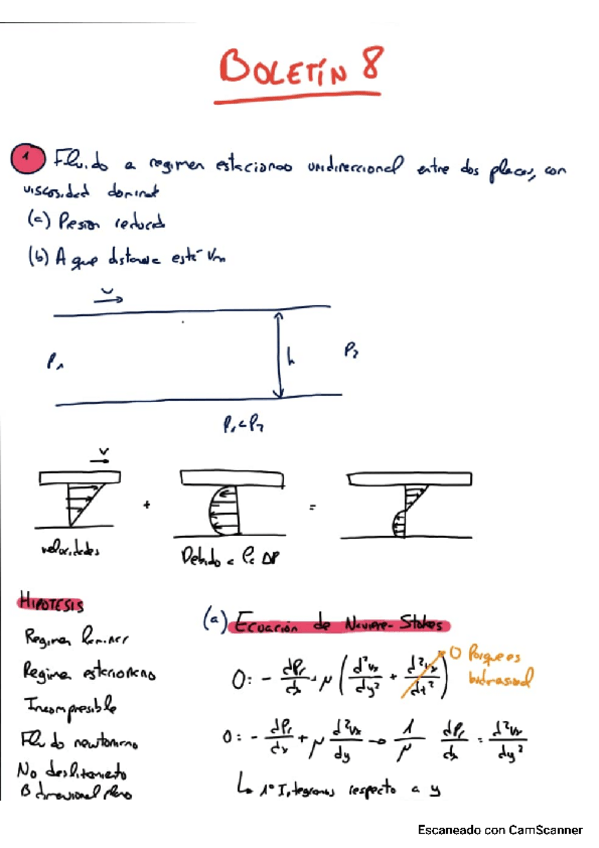 BOLETÍN 8
1 Fluido a regimen estacionario unidireccional entre dos placas, con
viscosidad dominat
(a) Presion reducid
(b) A que distancia está Vm
V
P1 h P2
P1<P2
V
+ =
velocidades Debido a la ΔP
HIPOTESIS
(a) Ecuación de Naviere-Stokes
Regimen laminar
Regimen estacionario
Incompresible
Fluido newtoniano
No deslizamiento
Bidireccional plano
0: - dPr/dx + μ (d²vx/dy² + d²vx/dz²) 0 Porque es
bidirasional
0: - dPr/dx + μ d²vx/dy → 1/μ dPr/dx = d²vx/dy²
↳ 1º Integramos respecto a y
Escaneado con CamScanner